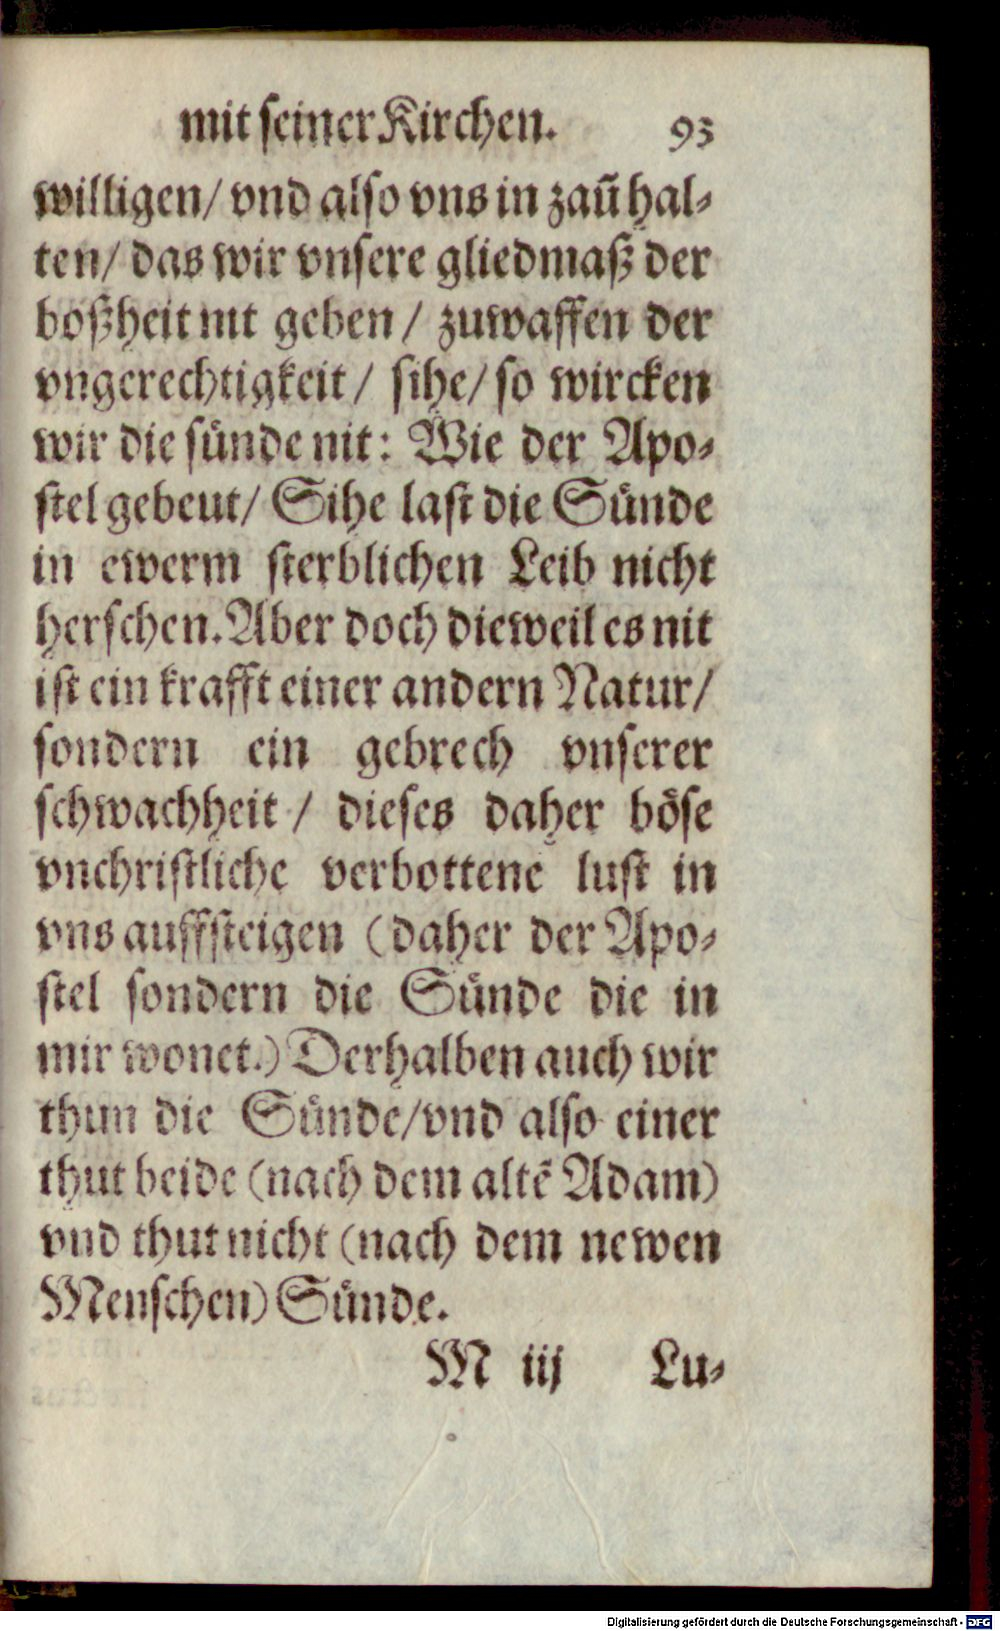 mit seiner Kirchen. 93
willigen/ vnd also vns in zaũ hal⸗
ten/ das wir vnsere gliedmaß der
boßheit nit geben / zuwaffen der
vngerechtigkeit / sihe/ so wircken
wir die sünde nit: Wie der Apo⸗
stel gebeut/ Sihe last die Sünde
in ewerm sterblichen Leib nicht
herschen. Aber doch dieweil es nit
ist ein krafft einer andern Natur/
sondern ein gebrech vnserer
schwachheit / dieses daher böse
vnchristliche verbottene lust in
vns auffsteigen (daher der Apo⸗
stel sondern die Sünde die in
mir wonet.) Derhalben auch wir
thun die Sünde/ vnd also einer
thut beide (nach dem altẽ Adam)
vnd thut nicht (nach dem newen
Menschen) Sünde.
M iij Lu⸗
Digitalisierung gefördert durch die Deutsche Forschungsgemeinschaft - DFG